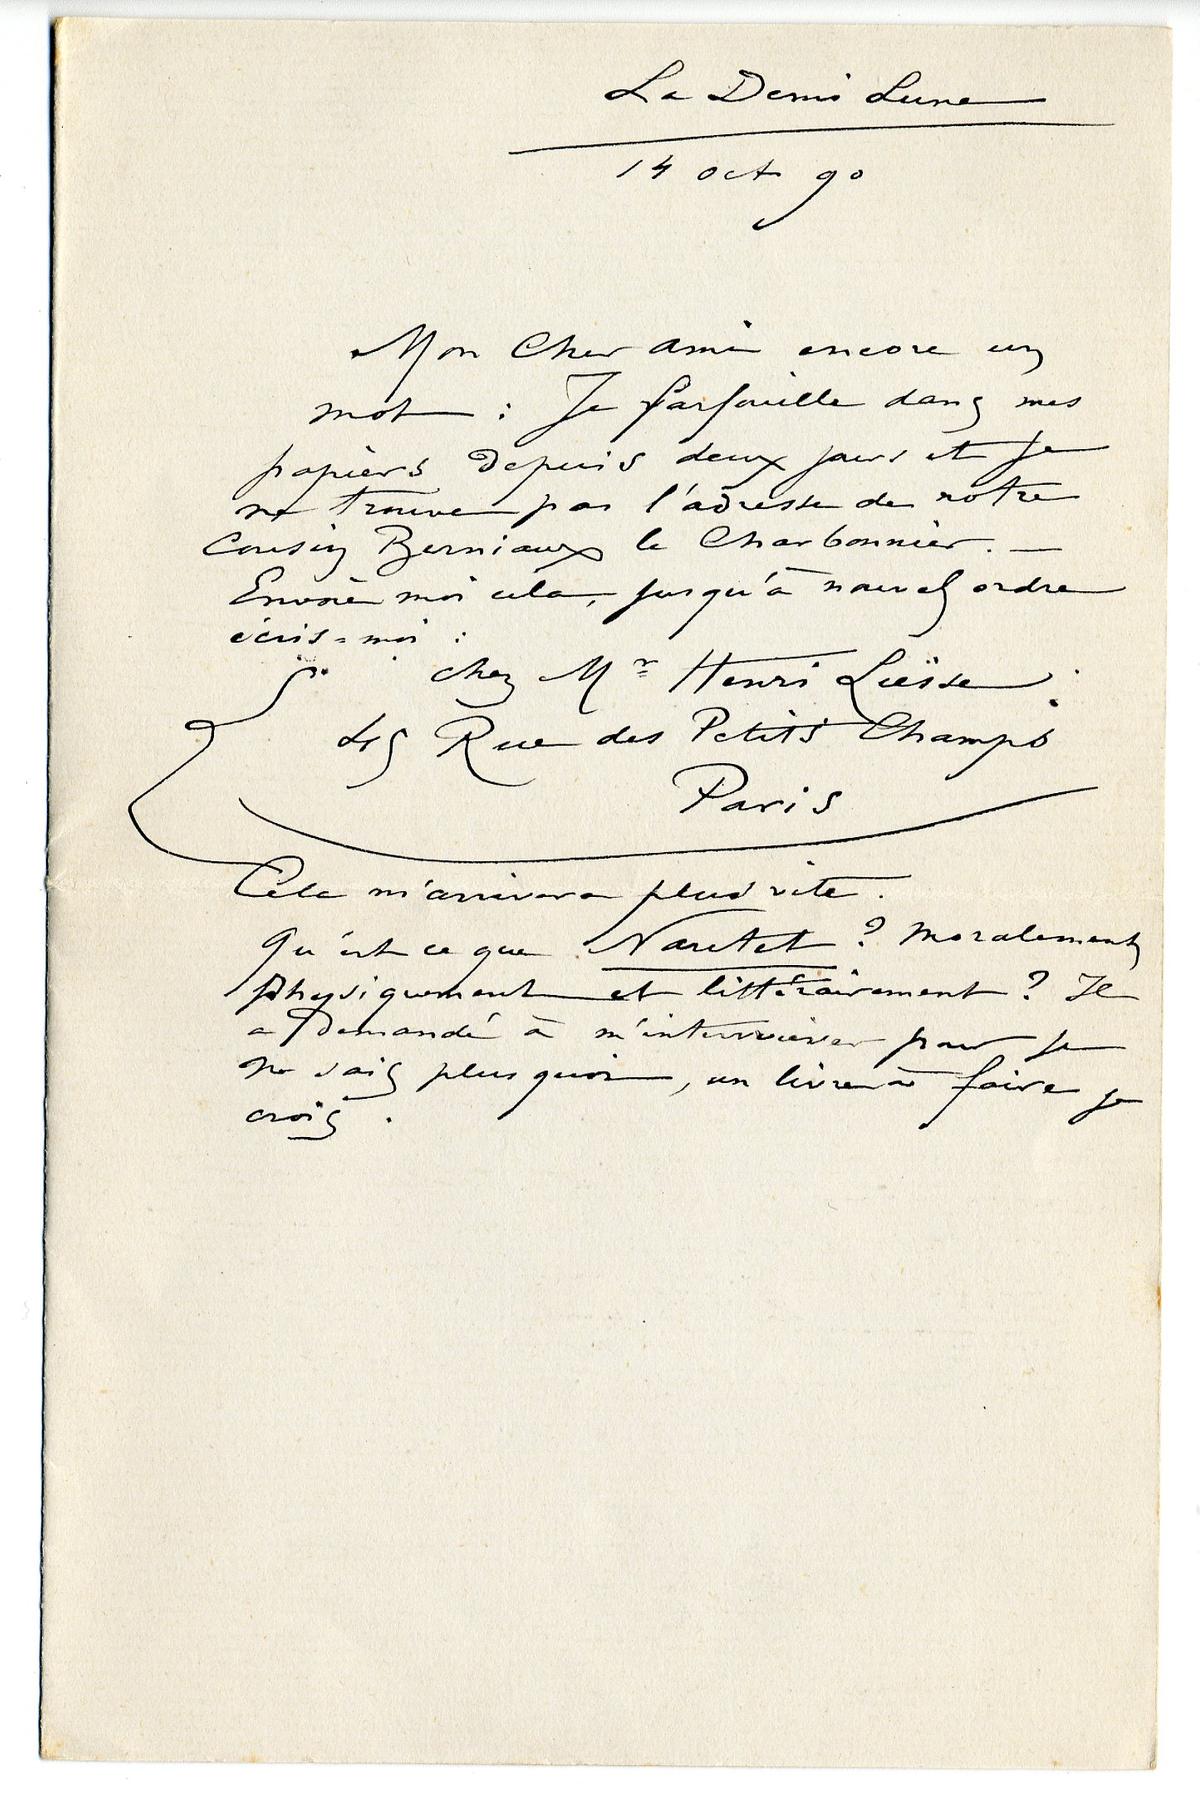 La Demi Lune
14 oct 90
Mon Cher ami encore un
mot : Je farfouille dans mes
papiers depuis deux jours et je
ne trouve pas l'adresse de notre
Cousin Berniaux le Charbonnier. —
Envoie moi cela, jusqu'à nouvel ordre
écris-moi :
chez Mr Henri Liesse
45 Rue des Petits Champs
Paris
Cela m'arrivera plus vite.
Qu'est ce que Nautet ? moralement
physiquement et littérairement ? Il
a demandé à m'interviewer pour je
ne sais plus quoi, un livre à faire je
crois.